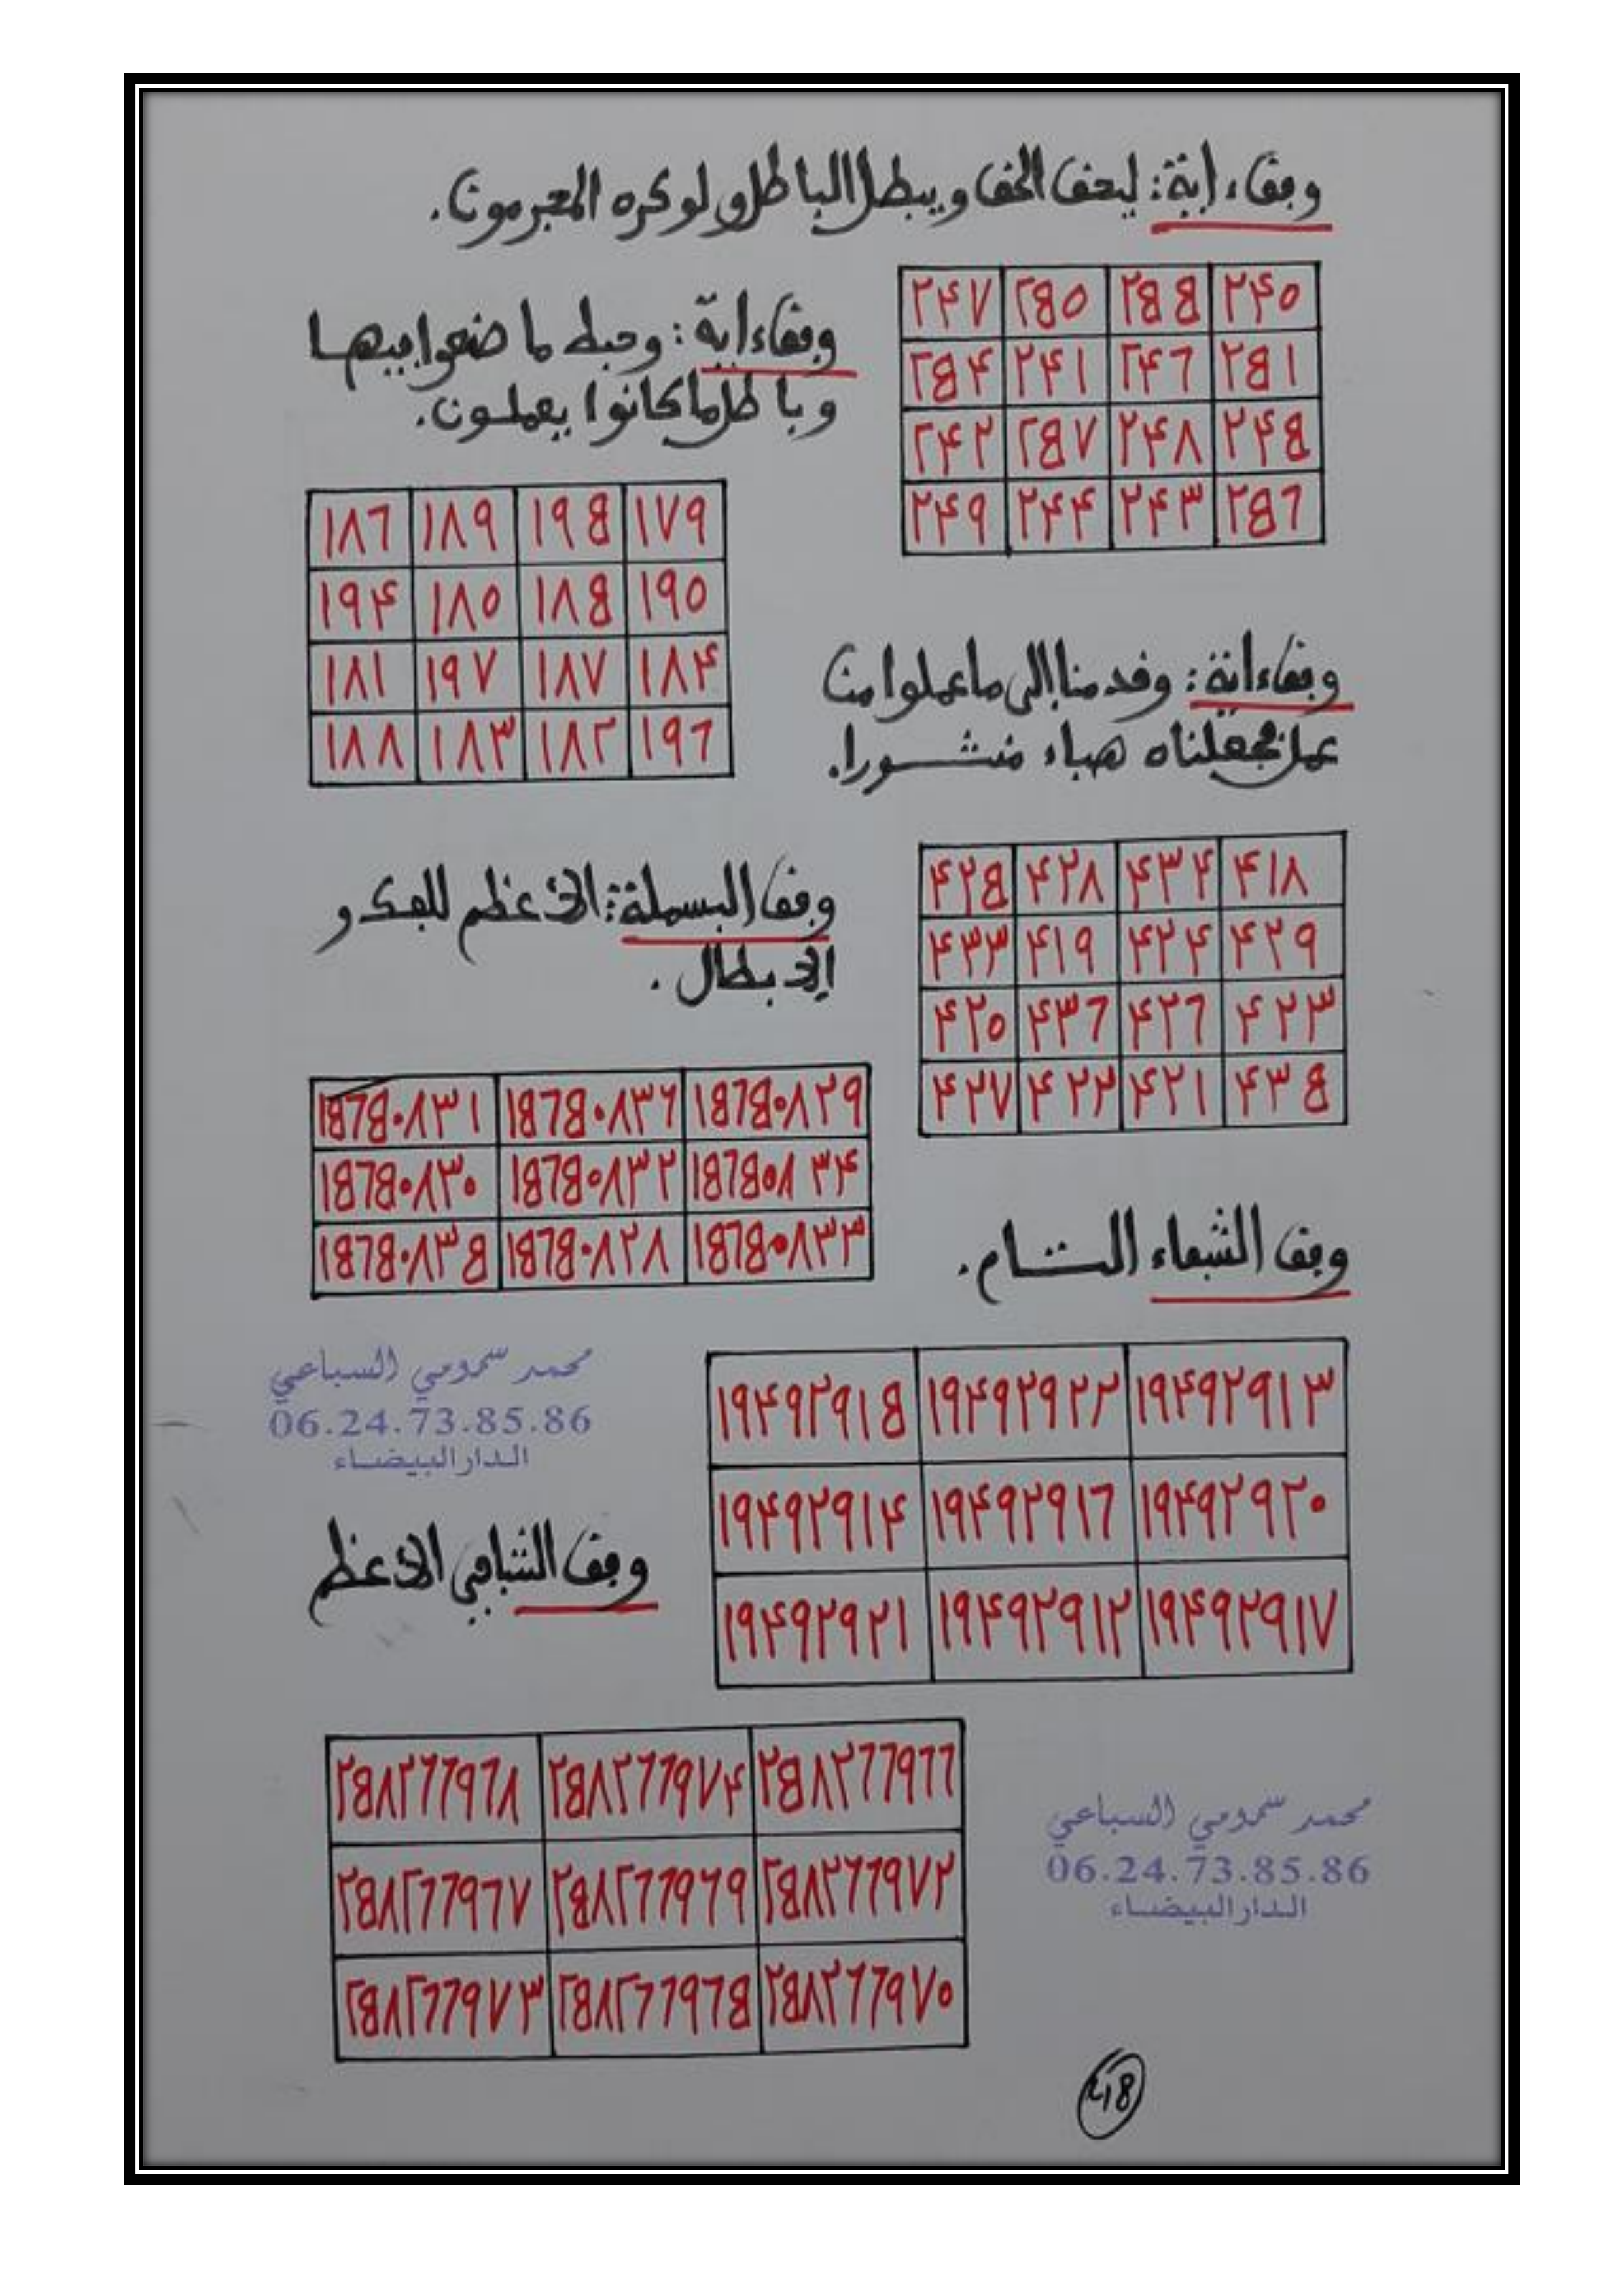 وفق ءاية: ليحق الحق ويبطل الباطل ولو كره المجرمون.
٢٤٠ ٢٥٥ ٢٥٠ ٢٤٧
٢٥١ ٢٤٦ ٢٤١ ٢٥٤
٢٤٥ ٢٤٨ ٢٥٧ ٢٤٢
٢٥٦ ٢٤٣ ٢٤٤ ٢٤٩
وفق ءاية: وحبط ما صنعوا فيها
وباطل ما كانوا يعملون.
١٧٩ ١٩٥ ١٨٩ ١٨٦
١٩٠ ١٨٥ ١٨٠ ١٩٤
١٨٤ ١٨٧ ١٩٧ ١٨١
١٩٦ ١٨٢ ١٨٣ ١٨٨
وفق ءاية: وقدمنا إلى ما عملوا من
عمل فجعلناه هباء منثورا.
٤١٨ ٤٣٤ ٤٢٨ ٤٢٥
٤٢٩ ٤٢٤ ٤١٩ ٤٣٣
٤٢٣ ٤٢٦ ٤٣٦ ٤٢٠
٤٣٥ ٤٢١ ٤٢٢ ٤٢٧
وفق البسملة: الأعظم للفك و
الإبطال.
١٥٦٥٠٨٢٩ ١٥٦٥٠٨٣٦ ١٥٦٥٠٨٣١
١٥٦٥٠٨٣٤ ١٥٦٥٠٨٣٢ ١٥٦٥٠٨٣٠
١٥٦٥٠٨٣٣ ١٥٦٥٠٨٢٨ ١٥٦٥٠٨٣٥
وفق الشفاء التام.
١٩٤٩٢٩١٣ ١٩٤٩٢٩٢٢ ١٩٤٩٢٩١٥
١٩٤٩٢٩٢٠ ١٩٤٩٢٩١٦ ١٩٤٩٢٩١٤
١٩٤٩٢٩١٧ ١٩٤٩٢٩١٢ ١٩٤٩٢٩٢١
محمد سمومي السباعي
06.24.73.85.86
الدار البيضاء
وفق الشافي الأعظم
٢٥٨٢٦٦٩٦٦ ٢٥٨٢٦٦٩٧٤ ٢٥٨٢٦٦٩٦٨
٢٥٨٢٦٦٩٧٢ ٢٥٨٢٦٦٩٦٩ ٢٥٨٢٦٦٩٦٧
٢٥٨٢٦٦٩٧٠ ٢٥٨٢٦٦٩٦٥ ٢٥٨٢٦٦٩٧٣
محمد سمومي السباعي
06.24.73.85.86
الدار البيضاء